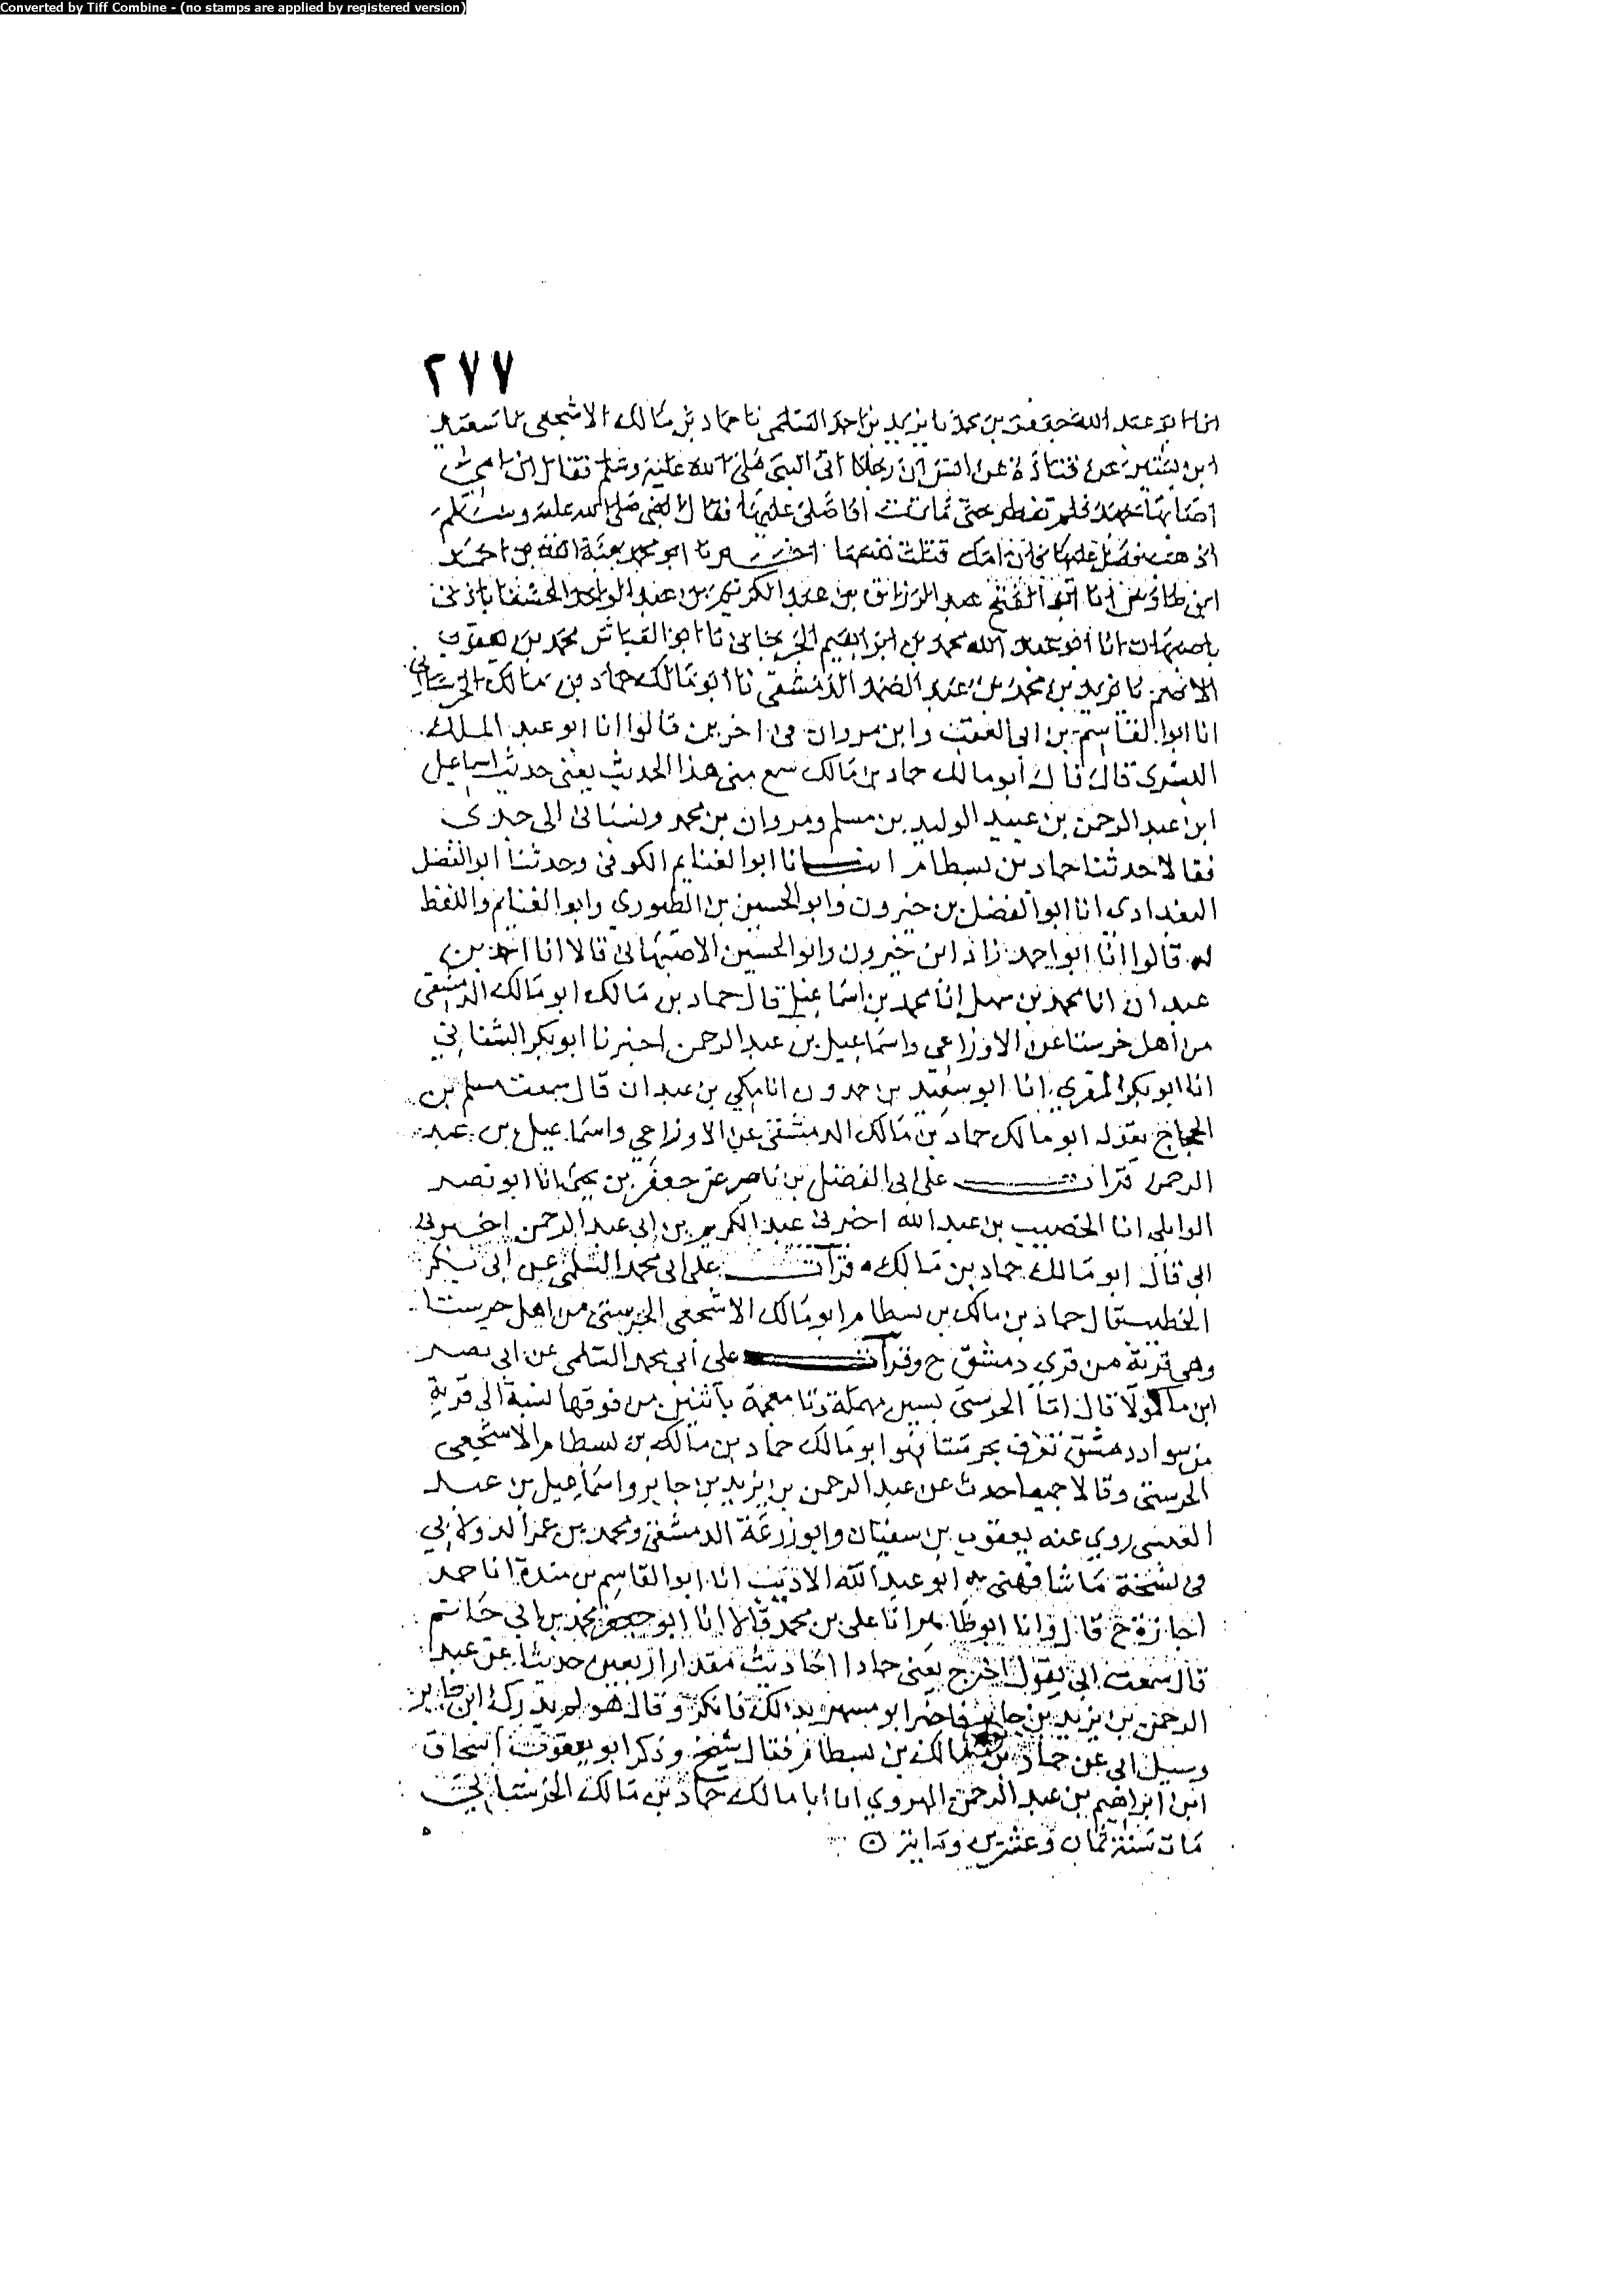 Converted by Tiff Combine - (no stamps are applied by registered version)
٢٧٧
انا ابو عبد الله جعفر بن محمد نا يزيد بن احمد السلمي نا حماد بن مالك الاشجعي نا سعيد
ابن بشير عن قتادة عن انس ان رجلا اتى النبي صلى الله عليه وسلم فقال ان امي
اصابها جهد فلم تفطر حتى ماتت افاصلي عليها فقال النبي صلى الله عليه وسلم
اذهب فصل عليها فان امك قتلت نفسها اخبرنا ابو محمد هبة الله بن احمد
ابن طاوس انا ابو الفتح عبد الرزاق بن عبد الكريم بن عبد الواحد
باصبهان انا ابو عبد الله محمد بن ابراهيم الجرجاني نا ابو العباس محمد بن يعقوب
الاصم نا يزيد بن محمد بن عبد الصمد الدمشقي نا ابو مالك حماد بن مالك الحرستاني
انا ابوا القاسم بن ابي العقب وابن مروان في اخرين قالوا انا ابو عبد الملك
البسري قال قال ابو مالك حماد بن مالك سمع مني هذا الحديث يعني حديث اسماعيل
ابن عبد الرحمن بن عبيد الوليد بن مسلم ومروان بن محمد ونسباني الى جدى
فقالا حدثنا حماد بن بسطام انبانا ابوا الغنايم الكوفي وحدثنا ابو الفضل
البغدادى انا ابوا الفضل بن خيرون وابو الحسين بن الطيوري وابوا الغنايم واللفظ
له قالوا انا ابو احمد زاد ابن خيرون وابو الحسين الاصبهاني قالا انا احمد بن
عبدان انا محمد بن سهل انا محمد بن اسماعيل قال حماد بن مالك ابو مالك الدمشقي
من اهل خرستا عن الاوزاعي واسماعيل بن عبد الرحمن اخبرنا ابو بكر الشقاني
انا ابو بكر المقري انا ابو سعيد بن حمدون انا مكي بن عبدان قال سمعت مسلم بن
الحجاج يقول ابو مالك حماد بن مالك الدمشقي عن الاوزاعي واسماعيل بن عبد
الرحمن قرات على ابي الفضل بن ناصر عن جعفر بن يحيى انا ابو نصر
الوايلي انا الخصيب بن عبد الله اخبرني عبد الكريم بن ابي عبد الرحمن اخبرني
ابي قال ابو مالك حماد بن مالك قرات على ابي محمد السلمي عن ابي بكر
الخطيب قال حماد بن مالك بن بسطام ابو مالك الاشجعي الحرستي من اهل حرستا
وهي قرية من قرى دمشق ح وقرات على ابي محمد السلمي عن ابي نصر
ابن ماكولا قال اما الحرستي بسين مهملة وتا معجمة باثنين من فوقها نسبة الى قرية
من سواد دمشق تعرف بحرستا فهو ابو مالك حماد بن مالك بن بسطام الاشجعي
الحرستي وقالا جميعا حدث عن عبد الرحمن بن يزيد بن جابر واسماعيل بن عبد
العنسي روي عنه يعقوب بن سفيان وابو زرعة الدمشقي ومحمد بن عمر الدولابي
في نسخة ما شافهني به ابو عبد الله الاديب انا ابوا القاسم بن مندة انا حمد
اجازة ح قال وانا ابو طاهر انا علي بن محمد قالا انا ابو محمد بن ابي حاتم
قال سمعت ابي يقول اخرج يعني حمادا احاديث مقدار اربعين حديثا عن عبد
الرحمن بن يزيد بن جابر فاخبر ابو مسهر بذالك فانكره وقال هو لم يدرك ابن جابر
وسيل ابي عن حماد بن مالك بن بسطام فقال شيخ وذكر ابو يعقوب اسحاق
ابن ابراهيم بن عبد الرحمن الهروي ان ابا مالك حماد بن مالك الحرستاني
مات سنة ثمان وعشرين ومايتين